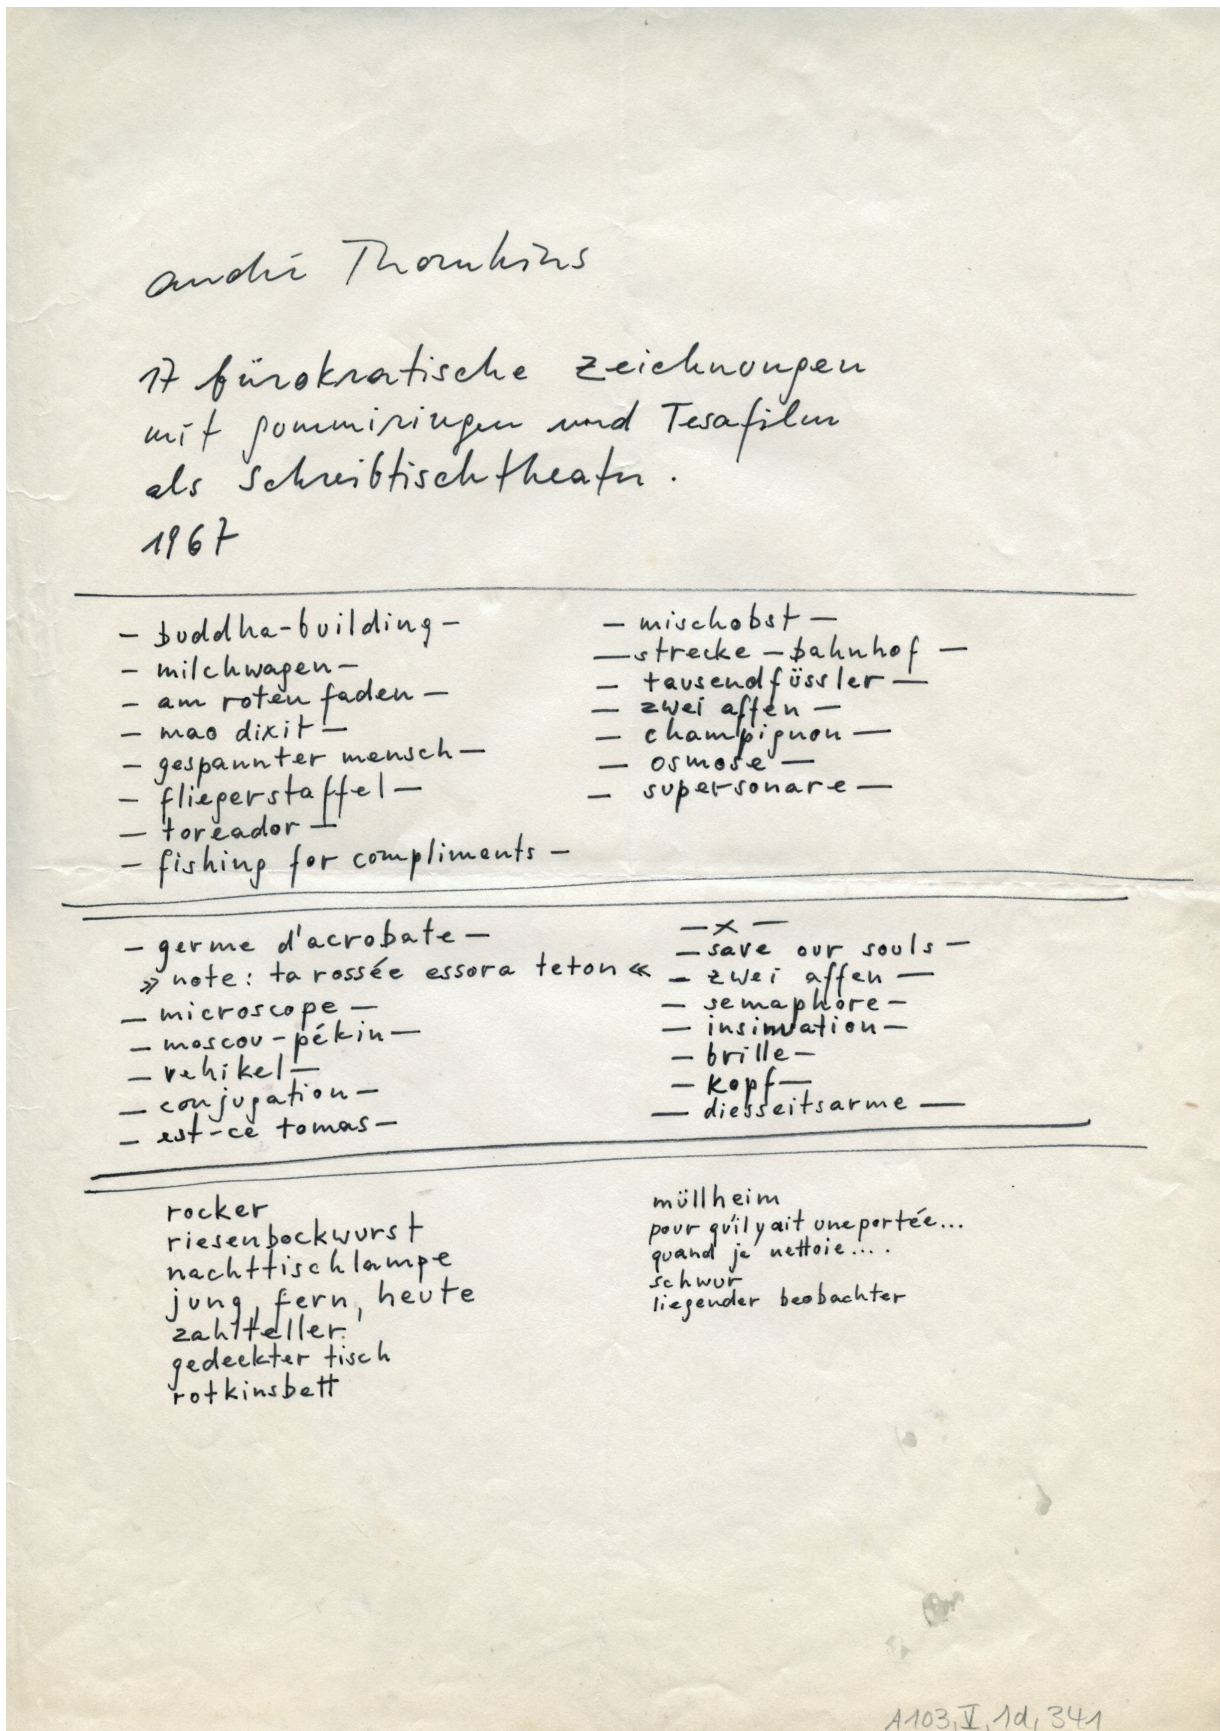 andré Thomkins
17 bürokratische Zeichnungen
mit gummiringen und Tesafilm
als Schreibtischtheater.
1967
– buddha-building –
– milchwagen –
– am roten faden –
– mao dixit –
– gespannter mensch –
– fliegerstaffel –
– toreador –
– fishing for compliments –
– mischobst –
– strecke – bahnhof –
– tausendfüssler –
– zwei affen –
– champignon –
– osmose –
– supersonare –
– germe d'acrobate –
» note: ta rossée essora teton «
– microscope –
– moscou-pékin –
– vehikel –
– conjugation –
– est-ce tomas –
– x –
– save our souls –
– zwei affen –
– semaphore –
– insinuation –
– brille –
– kopf –
– diesseitsarme –
rocker
riesenbockwurst
nachttischlampe
jung, fern, heute
zahlteller
gedeckter tisch
rotkinsbett
müllheim
pour qu'il y ait une portée...
quand je nettoie....
schwur
liegender beobachter
A103, V, 1d, 341